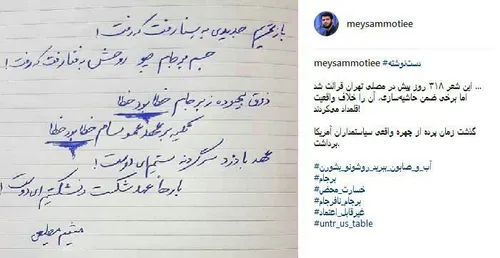 باز تحریم جدیدی به سنا رفت که رفت!
جسم برجام چو روحش به فنا رفت که رفت!
ذوق بیهوده ز برجام خطا بود خطا
تکیه بر عهد عمو سام خطا بود خطا
عهد با دزد سرگردنه بستیم ای دوست!
بارها عهد شکست و نشکستیم ای دوست!
میثم مطیعی
meysammotiee
meysammotiee #دست‌نوشته
... این شعر ۳۱۸ روز پیش در مصلی تهران قرائت شد
اما برخی ضمن حاشیه‌سازی، آن را خلاف واقعیت
قلمداد می‌کردند!
گذشت زمان پرده از چهره واقعی سیاستمداران آمریکا
برداشت.
#آب_و_صابون_ببرید_روشونو_بشورن
#برجام
#خسارت_محض
#برجام_نافرجام
#غیرقابل_اعتماد
#untr_us_table